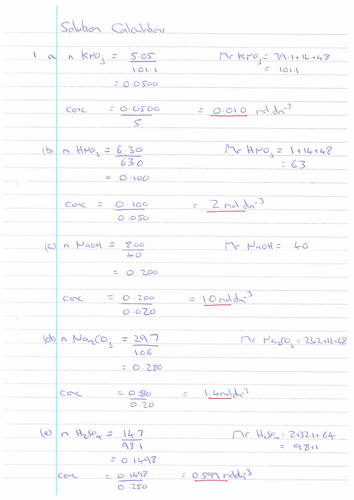 Solution Calculations
1 a n KNO3 = 5.05 / 101.1 Mr KNO3 = 39.1+14+48
= 0.0500 = 101.1
conc = 0.0500 / 5 = 0.010 mol dm-3
(b) n HNO3 = 6.30 / 63.0 Mr HNO3 = 1+14+48
= 0.100 = 63
conc = 0.100 / 0.050 = 2 mol dm-3
(c) n NaOH = 8.00 / 40 Mr NaOH = 40
= 0.200
conc = 0.200 / 0.020 = 10 mol dm-3
(d) n Na2CO3 = 29.7 / 106 Mr Na2CO3 = 23x2+12+48
= 0.280
conc = 0.280 / 0.20 = 1.4 mol dm-3
(e) n H2SO4 = 14.7 / 98.1 Mr H2SO4 = 2+32.1+64
= 0.1498 = 98.1
conc = 0.1498 / 0.250 = 0.599 mol dm-3